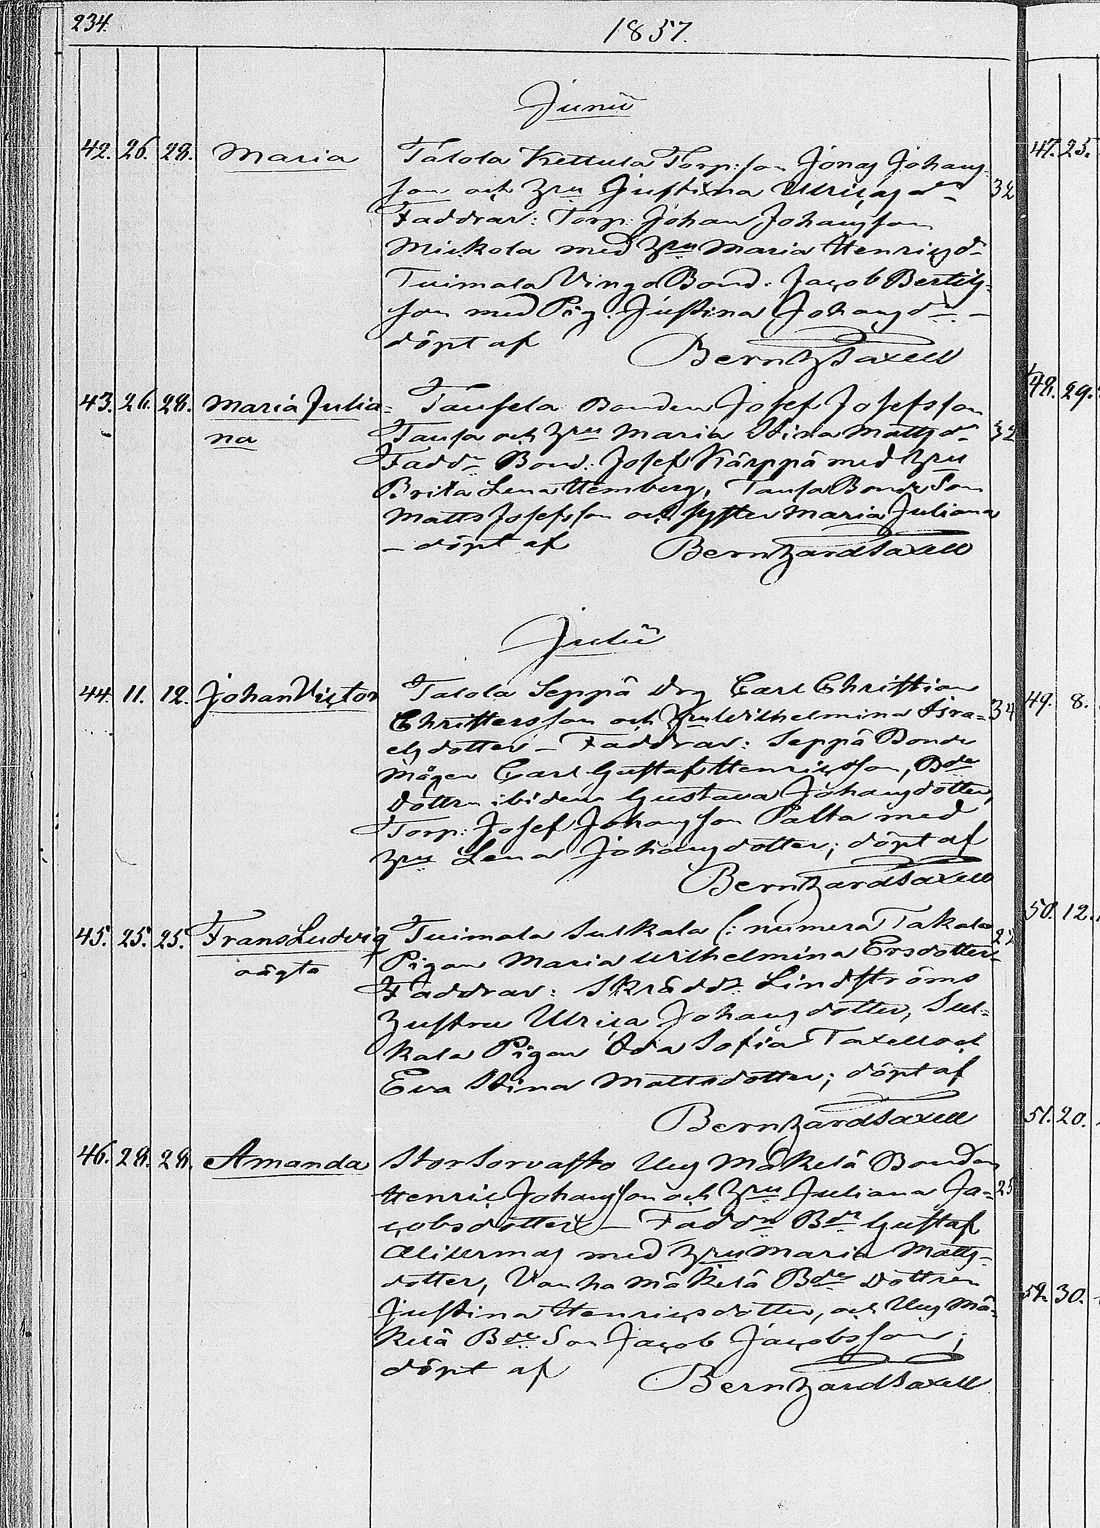 234.
1857.
Junii
42. 26. 28. Maria Talola Kettula Torp:son Jonas Johans-
son och Hru Justina Ulricasdr 32
Faddrar: Torp. Johan Johansson
Mickola med Hru Maria Henricsdr
Tuimala Vingo Bond. Jacob Bertils-
son med Pig. Justina Johansdr
döpt af Bernh Saxell
43. 26. 28. Maria Julia- Taufsla Bonden Josef Josefsson
na Taufa och Hru Maria Stina Mattsdr 32
Faddr Bond. Josef Kärppä med Hru
Brita Lena Hemberg, Taufa Bonde Son
Matts Josefsson och syster Maria Juliana
– döpt af Bernhard Saxell
Julii
44. 11. 12. Johan Victor Talola Seppä Drg Carl Christian
Christersson och Hru Wilhelmina Isra- 34
elsdotter – Faddrar: Seppä Bonde
Mågen Carl Gustaf Henricsson, Bde
Dottren ibidem Gustava Johansdotter,
Torp: Josef Johansson Palta med
Hru Lena Johansdotter; döpt af
Bernhard Saxell
45. 25. 25. Frans Ludvig Tuimala Sulkala (: numera Takala 22
oägta Pigan Maria Wilhelmina Ersdotter
Faddrar: Skrädd: Lindströms
Hustru Ulrica Johansdotter, Sul-
kala Pigan Ida Sofia Taxell och
Eva Stina Mattsdotter; döpt af
Bernhard Saxell
46. 28. 28. Amanda Stor Sorvasto Uus Mäkelä Bonden
Henric Johansson och Hru Juliana Ja- 25
cobsdotter – Faddr Bdr Gustaf
med Hru Maria Matts-
dotter, Vanha Mäkelä Bde Dottren
Justina Henricsdotter, och Uus Mä-
kelä Bde Son Jacob Jacobsson;
döpt af Bernhard Saxell
47. 25.
48. 29.
49. 8.
50. 12.
51. 20.
52. 30.